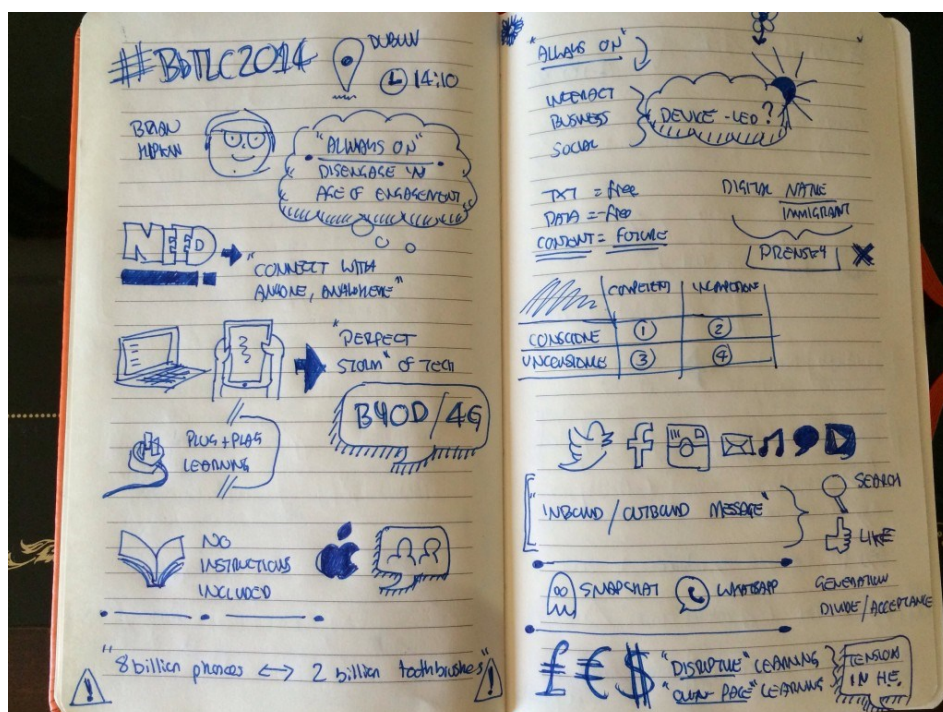 #BbTLC2014
DUBLIN
14:10
BRIAN
"ALWAYS ON"
DISENGAGE IN
AGE OF ENGAGEMENT
NEED
"CONNECT WITH
ANYONE, ANYWHERE"
"PERFECT
STORM" OF TECH
BYOD/4G
PLUG + PLAY
LEARNING
NO
INSTRUCTIONS
INCLUDED
"8 billion phones <-> 2 billion toothbrushes"
"ALWAYS ON"
INTERACT
BUSINESS
SOCIAL
DEVICE-LED?
TXT = free
DATA = free
CONTENT = FUTURE
DIGITAL NATIVE
IMMIGRANT
PRENSKY
1 2
3 4
"INBOUND / OUTBOUND MESSAGE"
SEARCH
LIKE
SNAPSHAT
WHATSAPP
GENERATION
DIVIDE/ACCEPTANCE
£ € $
"DISRUPTIVE" LEARNING
"OWN-PACE" LEARNING
TENSION
IN H.E.